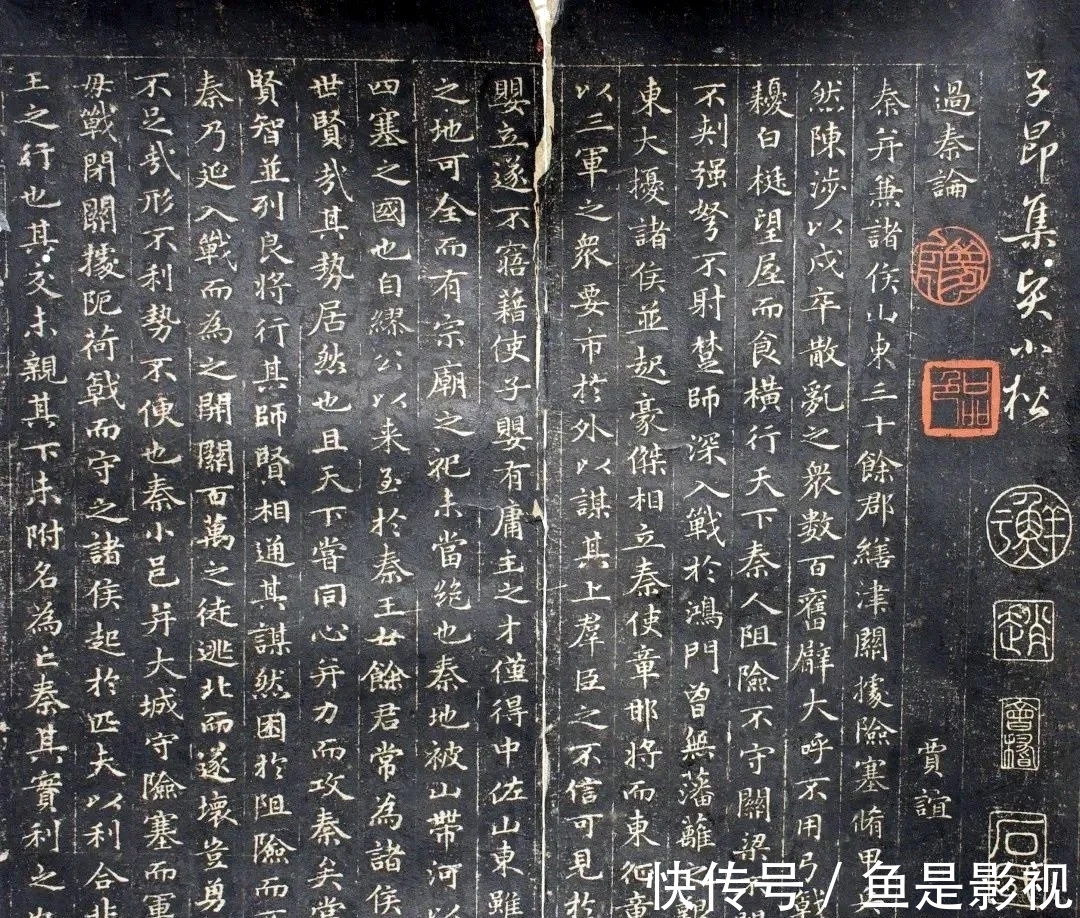 子昂集小松
過秦論 賈誼
秦并兼諸侯山東三十餘郡繕津關據險塞脩甲
然陳涉以戍卒散亂之衆数百奮臂大呼不用弓戟
耰白梃望屋而食橫行天下秦人阻險不守關梁不
不刺强弩不射楚師深入戰於鴻門曾無藩籬之
東大擾諸侯並起豪傑相立秦使章邯將而東征章
以三軍之衆要市於外以謀其上羣臣之不信可見於
嬰立遂不寤藉使子嬰有庸主之才僅得中佐山東雖
之地可全而有宗廟之祀未當絶也秦地被山帶河以
四塞之國也自繆公以来至於秦王廿餘君常為諸侯
世賢哉其勢居然也且天下嘗同心并力而攻秦矣當
賢智並列良將行其師賢相通其謀然困於阻險而
秦乃延入戰而為之開關百萬之徒逃北而遂壞豈勇
不足哉形不利勢不便也秦小邑并大城守險塞而軍
毋戰閉關據阨荷戟而守之諸侯起於匹夫以利合非
王之行也其交未親其下未附名為亡秦其實利之
趙
快传号/鱼是影视